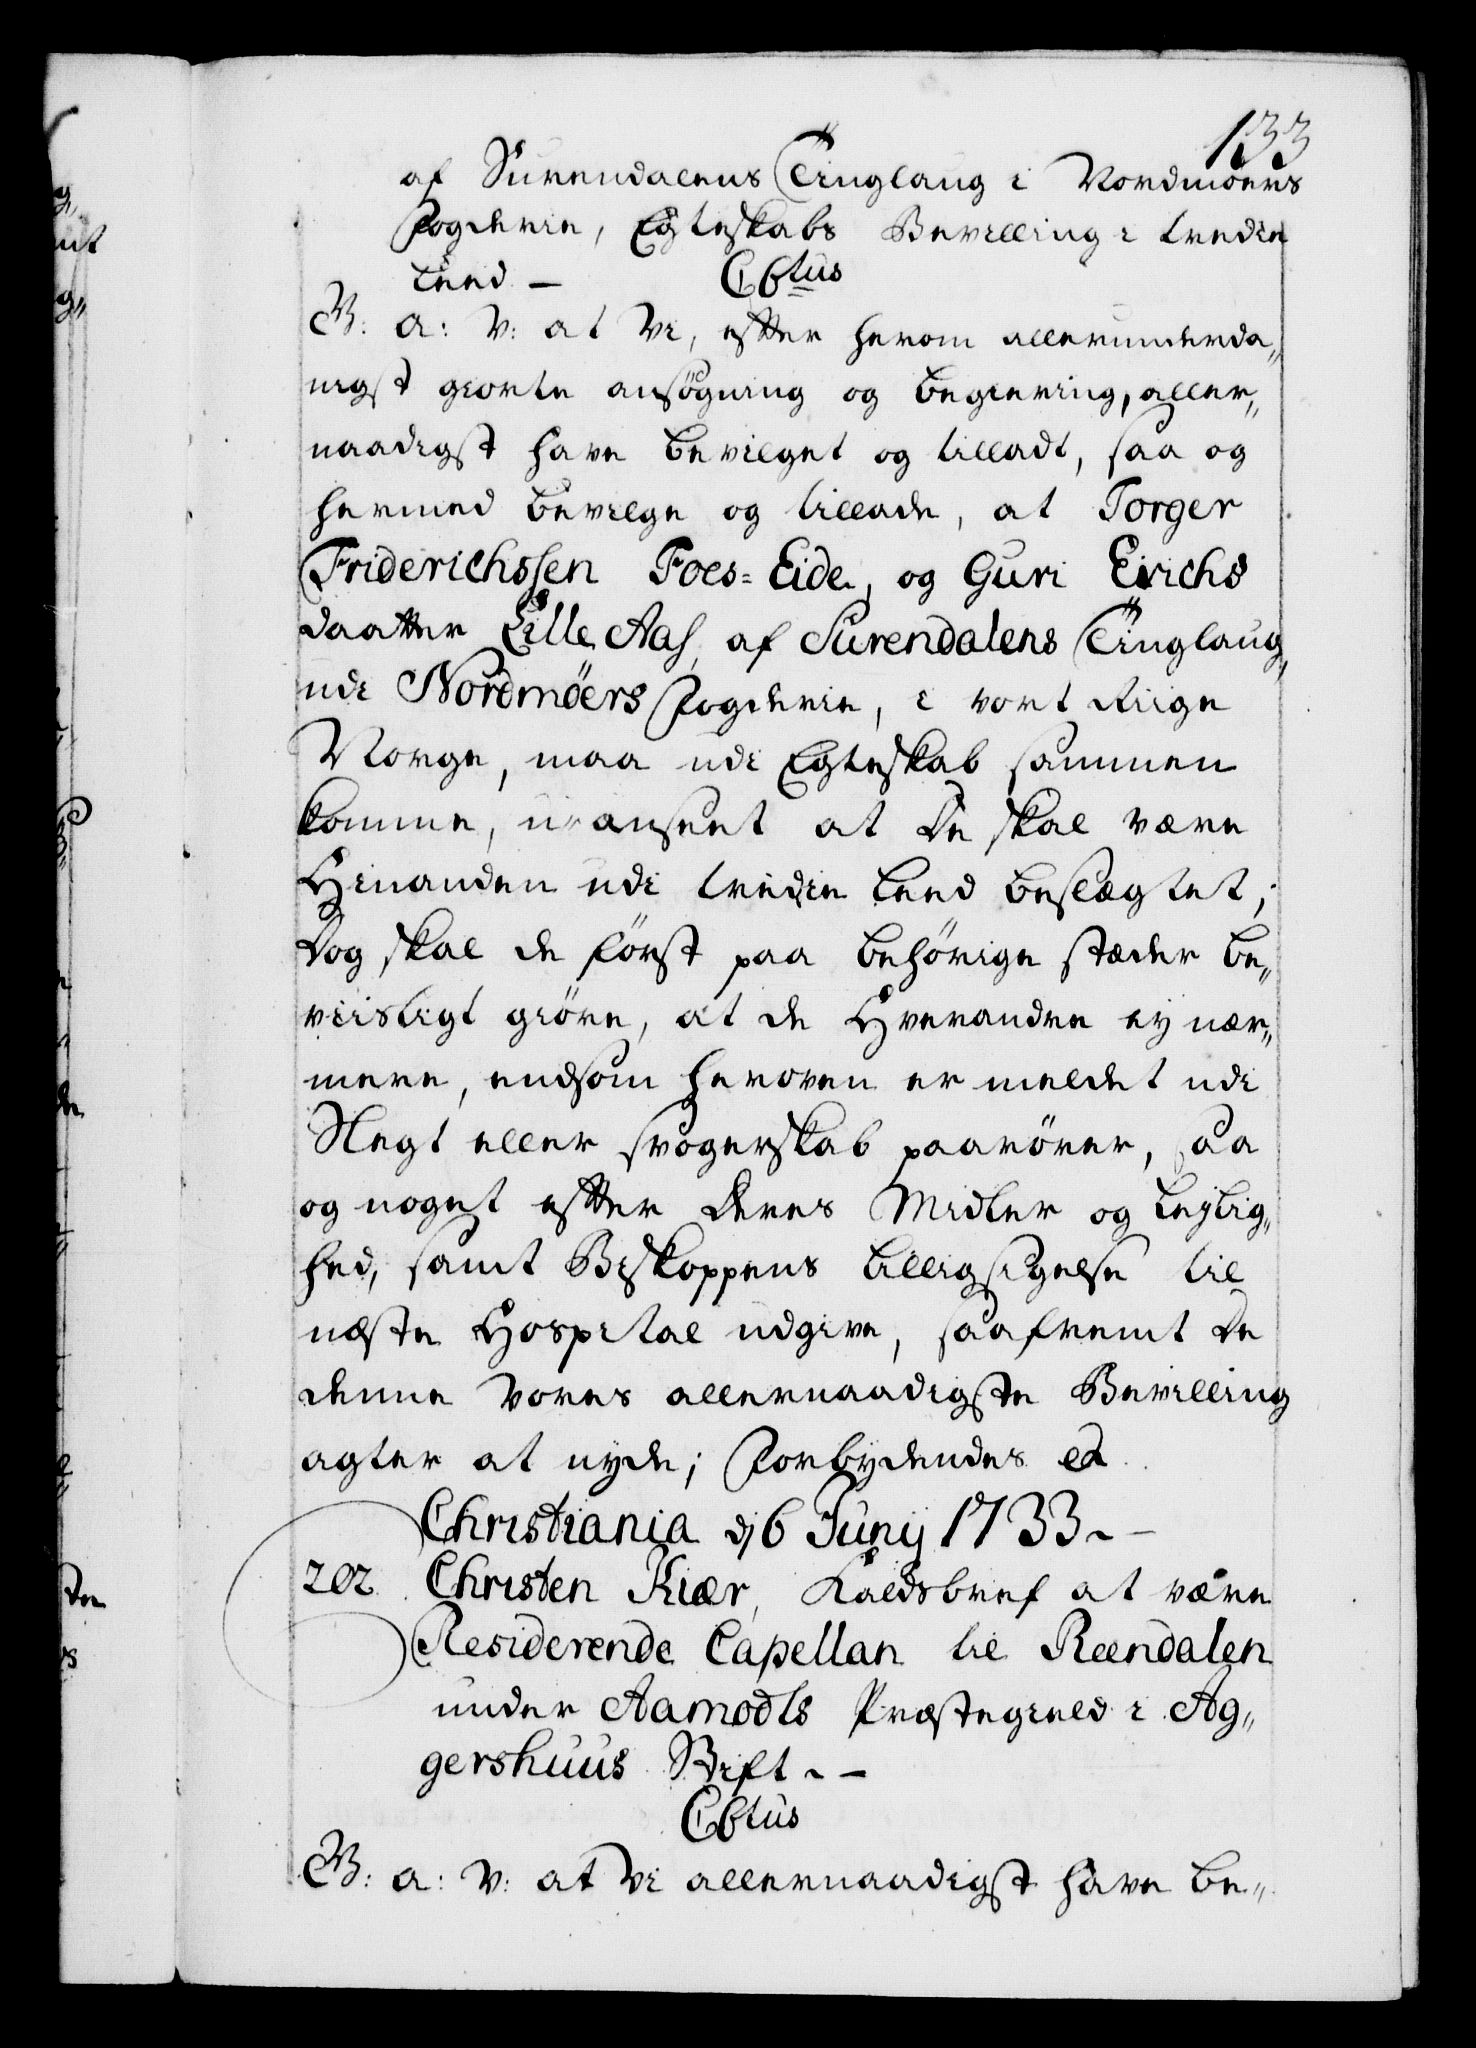 133
af Surendalens Tinglaug i Nordmöers
Fogderie, Egteskabs Bevilling i tredie
Leed – C6tus
G: a: V: at Vi, efter herom allerunderda„
nigst giorte ansögning og begiering, aller„
naadigst have bevilget og tilladt, saa og
hermed bevilge og tillade, at Torger
Friderichssen Foes=Eide, og Guri Erichs
daatter Lille Aas, af Surendalens Tinglaug,
udi Nordmöers Fogderie, i vort Riige
Norge, maa udi Egteskab sammen
komme, uanseet at De skal være
Hinanden udi tredie Leed beslægtet;
Dog skal de först paa behörige stæder be„
viisligt giöre, at de Hverandre ey nær„
mere, endsom heroven er meldet udi
Slegt eller svogerskab paarörer, saa
og noget efter Deres Midler og Leylig„
hed, samt Biskoppens tilligsigelse til
næste Hospital udgive, saafremt De
denne Vores allernaadigste Bevilling
agter at nyde; Forbydendes ec
Christiania dj 6 Junij 1733. –
202 Christen Kiær, Kaldsbref at være
Residerende Capellan til Reendalen
under Aamodts Præstegield i Ag„
gershuus Stift. –
C6tus
G: a: V: at Vi allernaadigst have be„